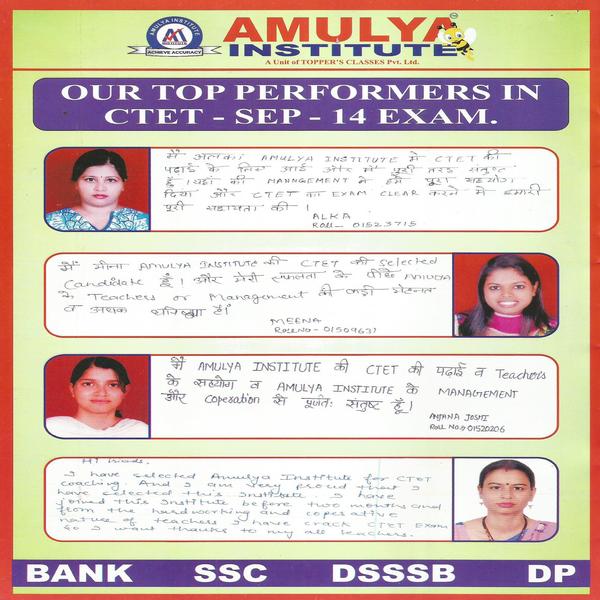 AMULYA INSTITUTE
ACHIEVE ACCURACY
AMULYA
INSTITUTE
A Unit of TOPPER'S CLASSES Pvt. Ltd.
OUR TOP PERFORMERS IN
CTET - SEP - 14 EXAM.
मैं अलका AMULYA INSTITUTE में CTET की
पढ़ाई के लिए आई और मैं पूरी तरह संतुष्ट
हूँ। यहाँ की MANNGEMENT ने हमें पूरा सहयोग
दिया और CTET का EXAM CLEAR करने में हमारी
पूरी सहायता की।
ALKA
ROLL- 01523715
मैं मीना AMULYA INSTITUTE की CTET की Selected
Candidate हूँ। और मेरी सफलता के पीछे AMULYA
के Teachers or Management की कड़ी मेहनत
व अथक है।
MEENA
ROLLNO- 01509637
मैं AMULYA INSTITUTE की CTET की पढाई व Teachers
के सहयोग व AMULYA INSTITUTE के MANAGEMENT
और Coperation से पूर्णतः संतुष्ट हूँ।
ANJANA JOSHI
ROLL NO.:- 01520206
I have selected Amulya Institute for CTET
coaching. And I am very proud that I
have selected this institute. I have
joined this institute before two months and
from the hardworking and coperative
nature of teachers I have crack CTET Exam
So I want thanks to my all teachers.
BANK SSC DSSSB DP